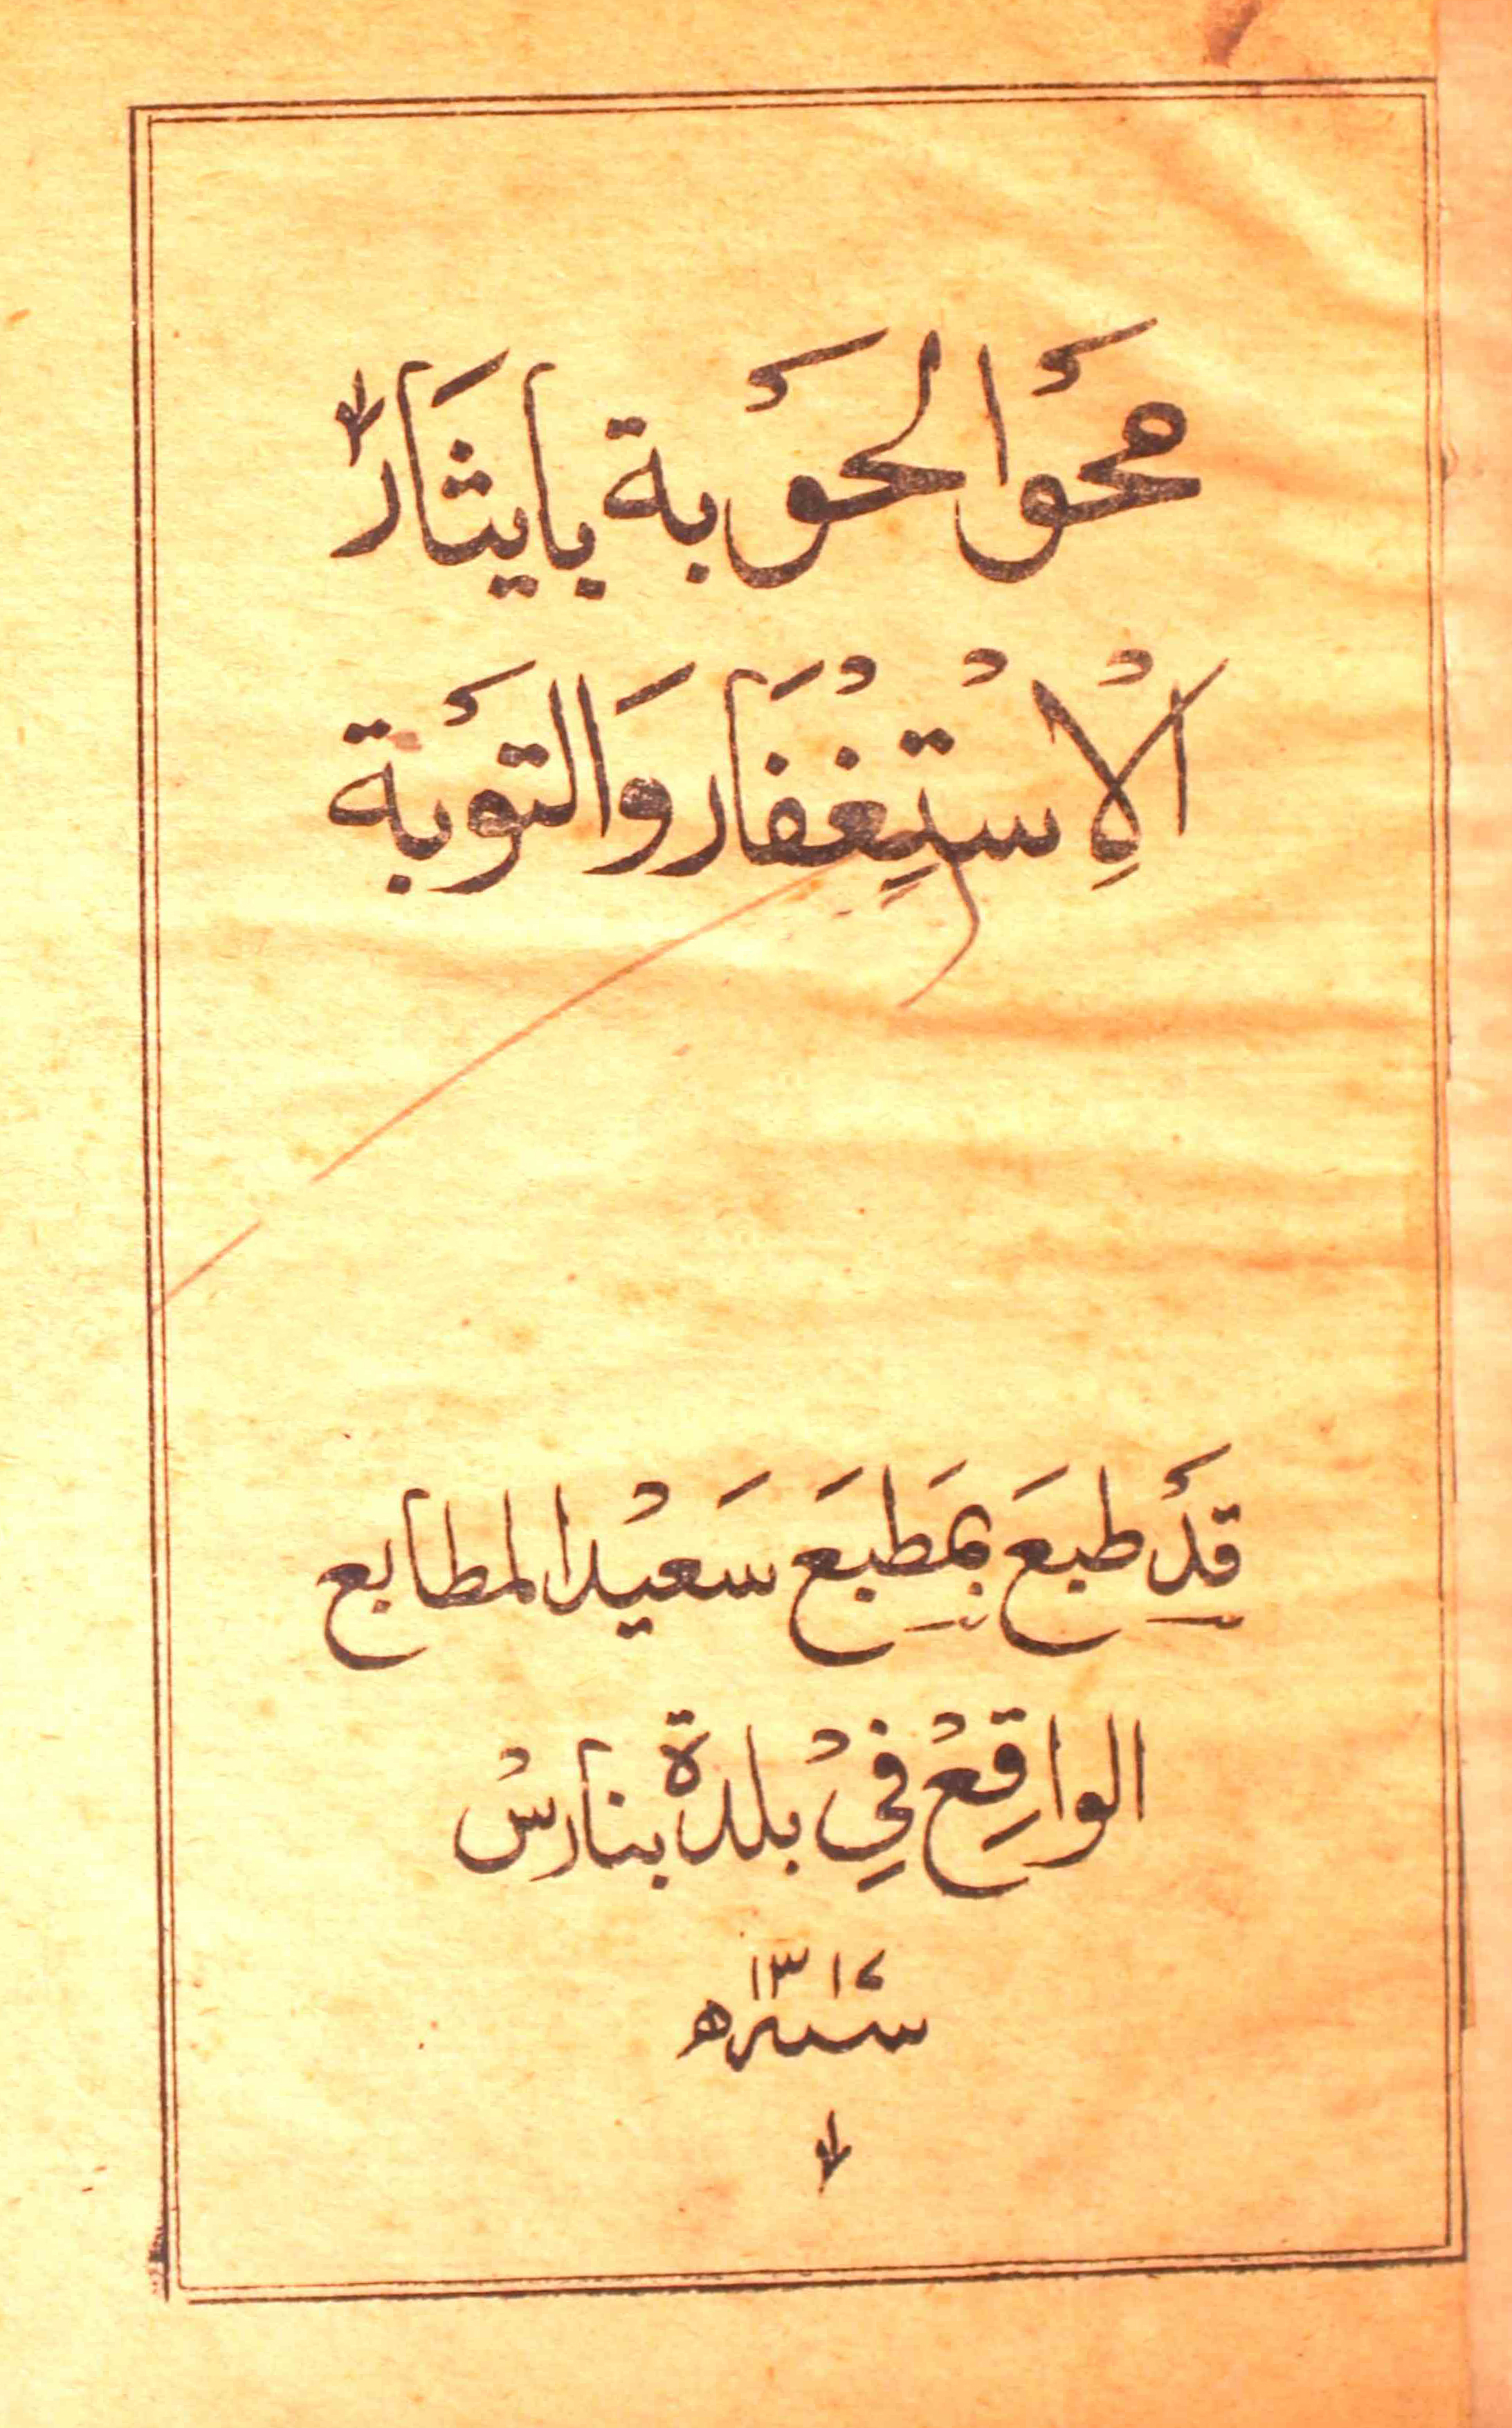 محَوْ الحَوْبة بايثَار
الْاِسْتِغْفَار وَالتوْبة
قَدْ طبعَ بمَطبَع سَعيْد المطابع
الواقِعْ فِيْ بلدة بنارسْ
سنہ ١٣١٢ ھ